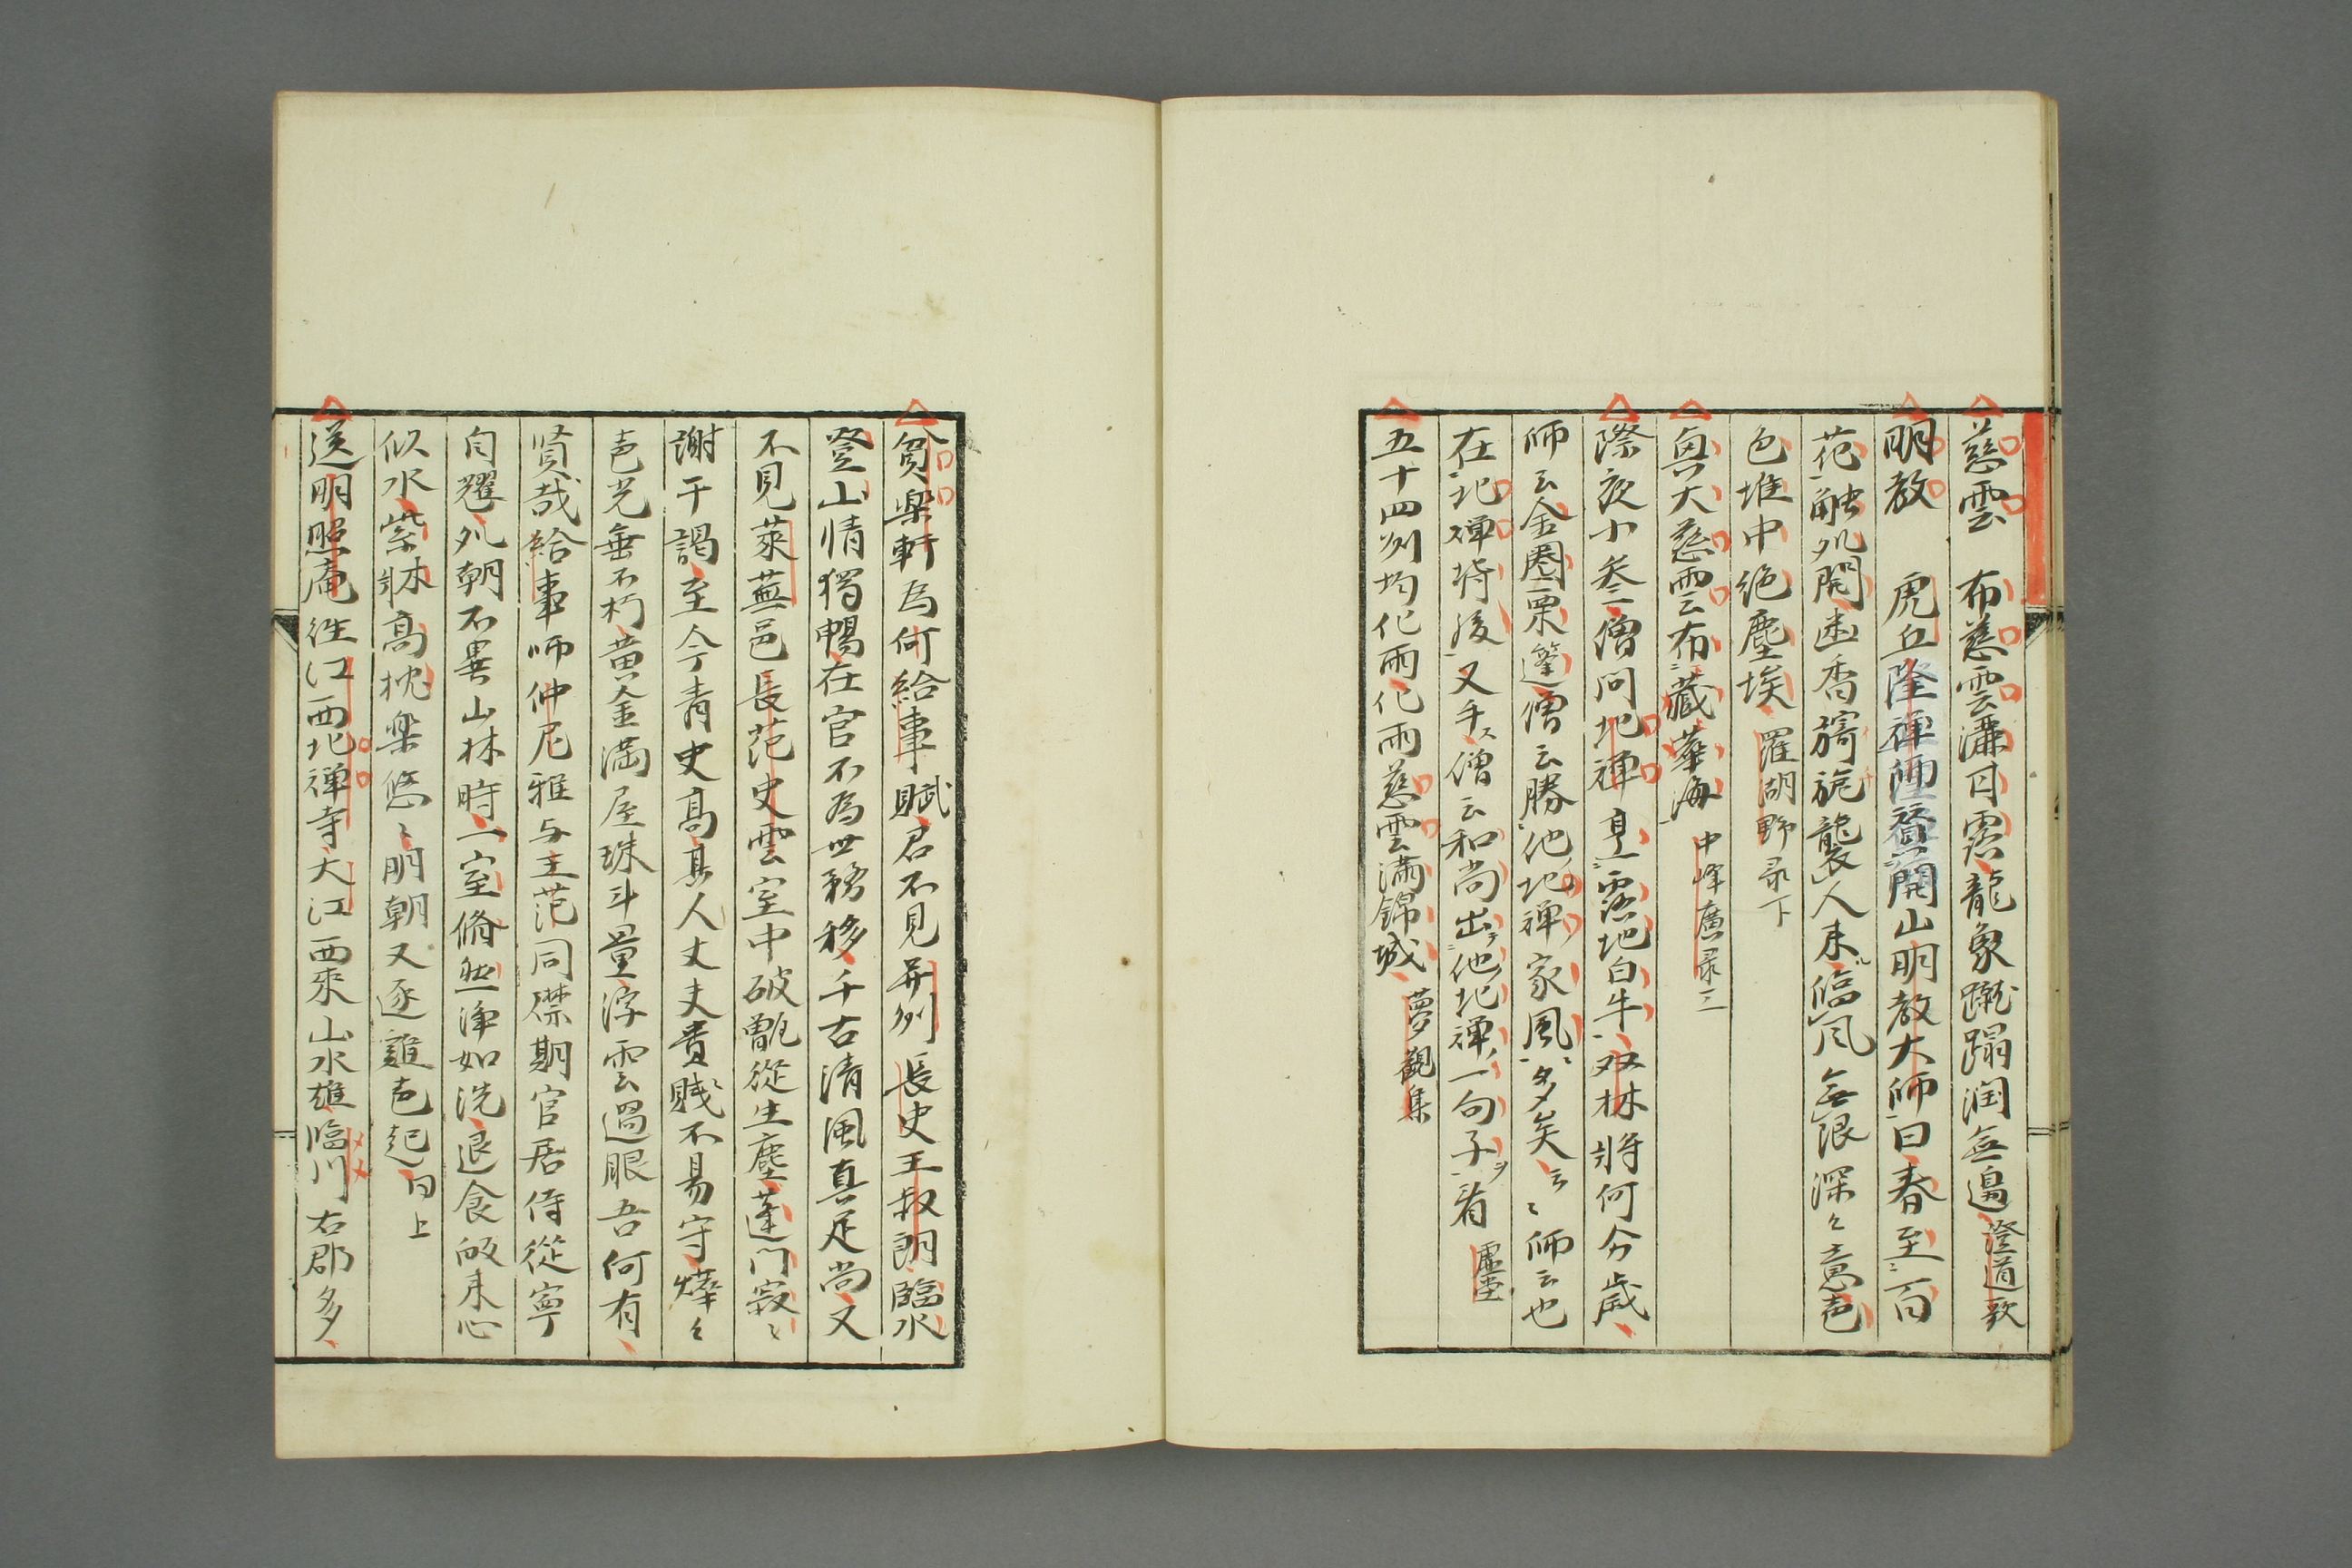 慈雲　布慈雲灑甘露龍象蹴蹋潤無邊　證道歌
明教　虎丘隆禪師開山明教大師曰春至百
花觸処開幽香旖旎襲人来臨風無限深々意声
色堆中絶塵埃　羅湖野录下
奥大慈雲布藏華海　中峰廣录三
際夜小参僧問北禪烹露地白牛双林將何分歳
师云金圏栗篷僧云勝他北禪家風多矣云々师云也
在北禪背後又手僧云和尚出他北禪一句子看　虚堂
五十四州均化雨化雨慈雲滿錦城　夢觀集
貧樂軒為何給事賦君不見并州長史王叔朗臨水
登山情獨暢在官不為世務移千古清風真足尚又
不見萊蕪邑長范史雲室中破甑從生塵蓬門寂々
謝干謁至今青史高其人丈夫貴賤不易守燁々
声光垂不朽黄金滿屋珠斗量浮雲過眼吾何有
賢哉給事师仲尼雅与王范同襟期官居侍從寧
自耀処朝不異山林時一室翛然淨如洗退食皈来心
似水紫牀高枕楽悠々明朝又逐雞声起　同上
送明照庵住江西北禪寺大江西来山水雄臨川右郡多